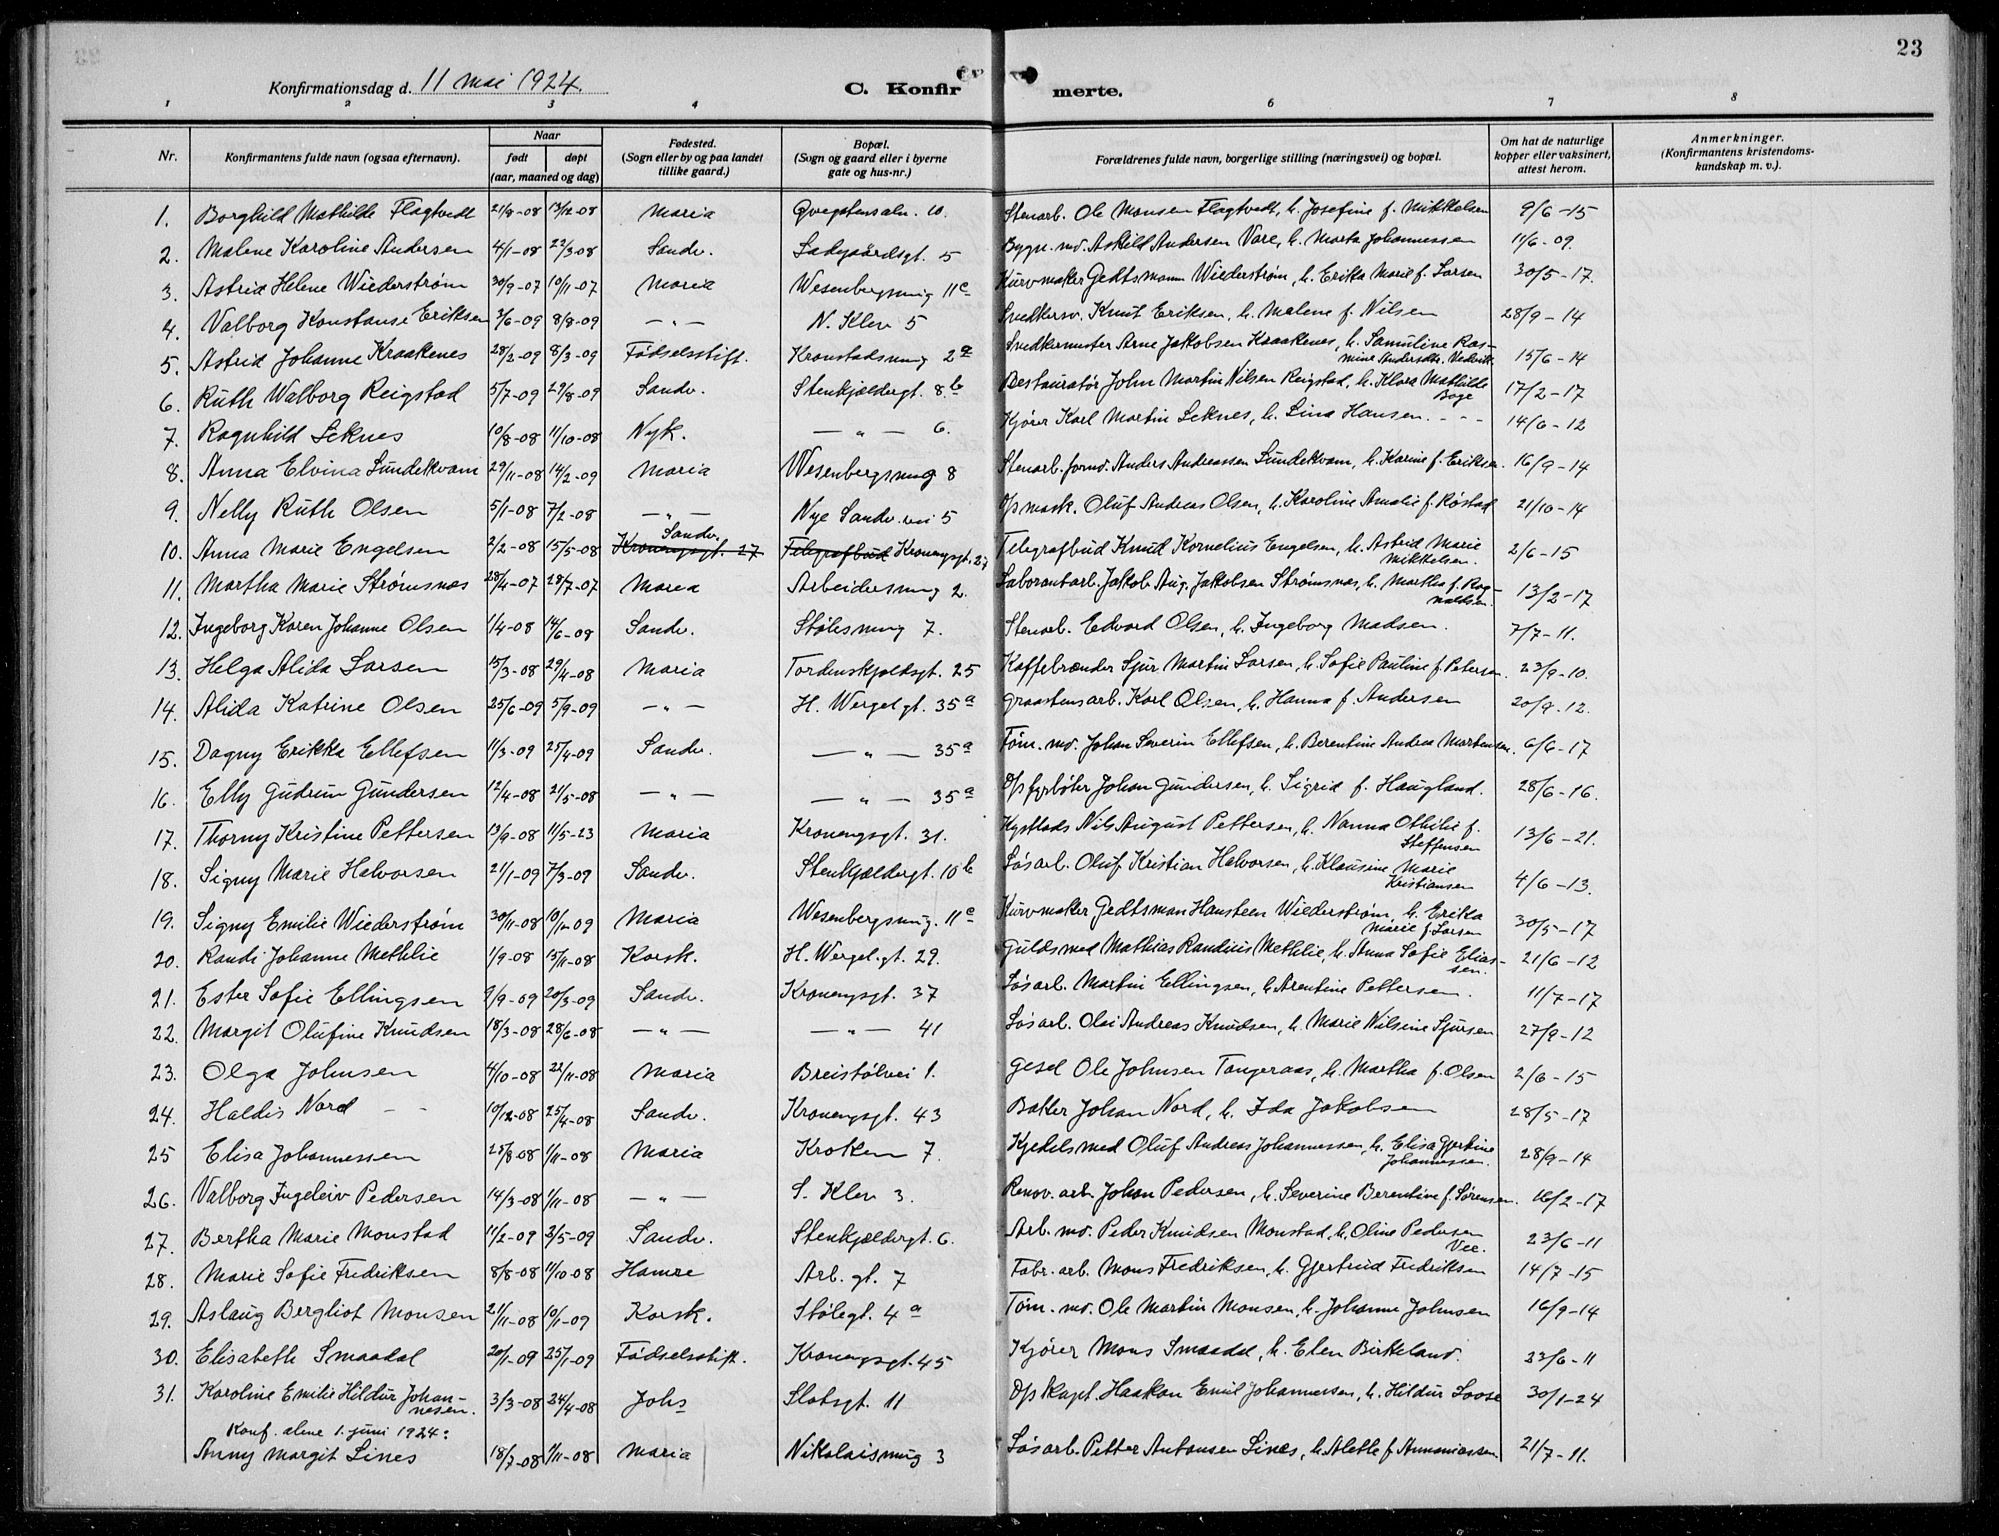 23
Konfirmationsdag d. 11 mai 1924.
C. Konfirmerte.
1 2 3 4 6 7 8
Nr. Konfirmantens fulde navn (ogsaa efternavn). Naar født døpt (aar, maaned og dag) Fødested. (Sogn eller by og paa landet tillike gaard.) Bopæl. (Sogn og gaard eller i byerne gate og hus-nr.) Forældrenes fulde navn, borgerlige stilling (næringsvei) og bopæl. Om hat de naturlige kopper eller vaksinert, attest herom. Anmerkninger. (Konfirmantens kristendoms-kundskap m. v.).
1. Borghild Mathilde Flagtvedt 21/8-08 13/12-08 Maria 10. Stenarb. Ole Monsen Flagtvedt, h. Josefine f. Mikkelsen 9/6-15
2. Malene Karoline Andersen 4/1-08 22/3-08 Sandv. Ladegaardsgt. 5 Bygn. md. Askild Andersen Vare, h. Marta Johannessen 11/6-09.
3. Astrid Helene Wiederstrøm 30/9-07 10/11-07 Maria Wesenbergsmug 11c Kurvmaker Gedtsmann Wiederstrøm, h. Erika Marie f. Larsen 30/5-17.
4. Valborg Konstanse Eriksen 7/6-09 8/8-09 — „ — N. Klev 5 Snedkersv. Knut Eriksen, h. Malene f. Nilsen 28/9-14
5. Astrid Johanne Kraakenes 28/2-09 8/3-09 Fødselsstift. Kronstadsmug 2a Snedkermester Arne Jakobsen Kraakenes, h. Samuline Rasmine Andersdtr. Vedvik. 15/6-14
6. Ruth Walborg Reigstad 5/7-09 29/8-09 Sandv. Stenkjeldergt. 8b Restauratør John Martin Nilsen Reigstad, h. Klara Mathilde Boge 17/2-17
7. Ragnhild Leknes 10/8-08 11/10-08 Nyk. — „ — 6. Kjører Karl Martin Leknes, h. Lina Hansen. - - 14/6-12
8. Anna Elvina Lundekvam 29/11-08 14/2-09 Maria Wesenbergsmug 8 Stenarb. formd. Anders Andreassen Lundekvam, h. Karine f. Eriksen. 16/9-14
9. Nelly Ruth Olsen 5/1-08 7/2-08 — „ — Nye Sandv. vei 5 Dpsmask. Oluf Andreas Olsen, h. Karoline Amalie f. Røstad 21/10-14
10. Anna Marie Engelsen 2/2-08 15/5-08 Sandv. Kronengsgt. 27 Telegrafbud Kronengsgt. 27 Telegrafbud Knud Kornelius Engelsen, h. Astrid Marie Mikkelsen. 2/6-15
11. Martha Marie Strømsnæs 28/4-07 28/7-07 Maria Arbeidersmug 2. Laborantarb. Jakob Aug. Jakobsen Strømsnæs, h. Martha f. Ragnaldsen. 13/2-17
12. Ingeborg Karen Johanne Olsen 1/4-08 14/6-08 Sandv. Stølesmug 7. Stenarb. Edvard Olsen, h. Ingeborg Madsen. 7/7-11.
13. Helga Alida Larsen 15/3-08 29/4-08 Maria Tordenskjoldsgt. 25 Kaffebrænder Sjur Martin Larsen, h. Sofie Pauline f. Petersen. 23/9-10.
14. Alida Katrine Olsen 25/6-09 5/9-09 — „ — H. Wergel.gt. 35a Graastensarb. Karl Olsen, h. Hanna f. Andersen 20/9-12.
15. Dagny Erikka Ellefsen 11/3-09 25/4-09 Sandv. — „ — 35a Tøm. md. Johan Severin Ellefsen, h. Berentine Andrea Mortensen. 6/6-17
16. Elly Gudrun Gundersen 12/4-08 21/5-08 — „ — — „ — 35a Dpsfyrbøter Johan Gundersen, h. Sigrid f. Haugland. 28/6-16.
17. Thorny Kristine Pettersen 13/9-08 11/5-23 Maria Kronengsgt. 31. Kystlods Nils August Pettersen, h. Nanna Othilie f. Steffensen 13/6-21.
18. Signy Marie Halvorsen 21/1-09 7/3-09 Sandv. Stenkjeldergt. 10b Løsarb. Oluf Kristian Halvorsen, h. Klausine Marie Kristiansen 4/6-13.
19. Signy Emilie Wiederstrøm 30/11-08 10/1-09 Maria Wesenbergsmug. 11c Kurvmaker Gedtsman Hansteen Wiederstrøm, h. Erika Marie f. Larsen 30/5-17
20. Randi Johanne Methlie 1/9-08 15/11-08 Korsk. H. Wergel.gt. 29. Guldsmed Mathias Randius Methlie, h. Anna Sofie Eliassen. 21/6-12
21. Ester Sofie Ellingsen 9/9-09 20/3-09 Sandv. Kronengsgt. 37 Løsarb. Martin Ellingsen, h. Arentine Pettersen. 11/7-17
22. Margit Olufine Knudsen 18/3-08 28/6-08 — „ — — „ — 41 Løsarb. Olai Andreas Knudsen, h. Marie Nilsine Sjursen 27/9-12
23. Olga Johnsen 4/10-08 22/11-08 Maria Breistølvei 1. Gesel Ole Johnsen Tangeraas, h. Martha f. Olsen 2/6-15
24. Haldis Nord - - 10/12-08 25/4-08 Sandv. Kronengsgt. 43 Baker Johan Nord, h. Ida Jakobsen 28/5-17
25 Elisa Johannessen 25/8-08 1/11-08 Maria Kroken 7. Kjedelsmed Oluf Andreas Johannessen, h. Elisa Gjertine Johannessen. 28/9-14
26. Valborg Ingeleiv Pedersen 14/3-08 1/11-08 — „ — S. Klev 3. Renov. arb. Johan Pedersen, h. Severine Berentine f. Sørensen. 16/2-17
27. Bertha Marie Monstad 11/2-09 2/5-09 Sandv. Stenkjeldergt. 6. Arb. md. Peder Knudsen Monstad, h. Oline Pedersen Vee. 23/6-11
28. Marie Sofie Fredriksen 8/8-08 11/10-08 Hamre Arb. gt. 7 Fabr. arb. Mons Fredriksen, h. Gjertrud Fredriksen 14/7-15
29. Aslaug Bergliot Monsen 21/11-08 10/1-09 Korsk. Stølegt. 4a Tøm. md. Ole Martin Monsen, h. Johanne Johnsen 16/9-14
30. Elisabeth Smaadal 20/1-09 25/1-09 Fødselsstift. Kronengsgt. 45 Kjører Mons Smaadal, h. Elen Birkeland. 23/6-11
31. Karoline Emilie Hildur Johannesen. 3/3-08 24/4-08 Johs Slotsgt. 11 Dpskapt. Haakon Emil Johannessen, h. Hildur Loose 30/1-24
Konf. alene 1. juni 1924:
Anny Margit Lines 18/7-08 1/11-08 Maria Nikolaismug 3 Løsarb. Petter Antonsen Lines, h. Alethe f. Annaniassen. 21/7-11.